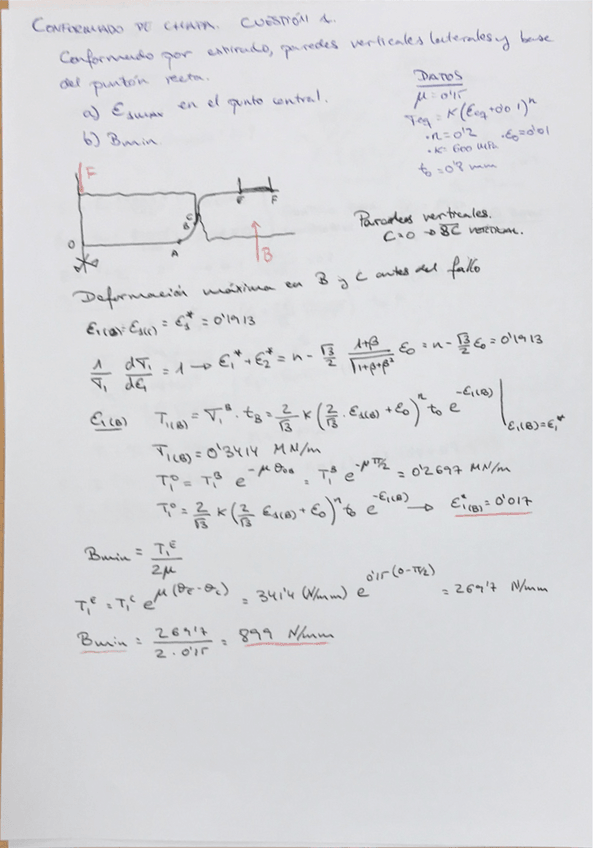 CONFORMADO DE CHAPA. CUESTIÓN 1.
Conformado por estirado, paredes verticales laterales y base
del puntón recta.
a) ε1max en el punto central.
b) Bmin.
DATOS
μ = 0'15
σeq = K(εeq+0'01)^n
· n = 0'2 · ε0 = 0'01
· K 600 MPa
t0 = 0'8 mm
F
E F
C
B
O
A
B
Paredes verticales.
C=0 → BC VERTICAL.
Deformación máxima en B y C antes del fallo
ε1(B) = ε1(C) = ε1* = 0'1913
1/σ1 dσ1/dε1 = 1 → ε1* + ε2* = n - √3/2 (1+β)/√(1+β+β²) ε0 = n - √3/2 ε0 = 0'1913
ε1(B) T1(B) = σ1^B · tB = 2/√3 K (2/√3 · ε1(B) + ε0)^n t0 e^-ε1(B) | ε1(B)=ε1*
T1(B) = 0'3414 MN/m
T1^O = T1^B e^-μθOB = T1^B e^-μπ/2 = 0'2697 MN/m
T1^O = 2/√3 K (2/√3 ε1(B) + ε0)^n t0 e^-ε1(B) → ε*1(B) = 0'017
Bmin = T1^E / 2μ
T1^E = T1^C e^μ(θE-θC) = 341'4 (N/mm) e^0'15(0-π/2) = 269'7 N/mm
Bmin = 269'7 / 2·0'15 = 899 N/mm